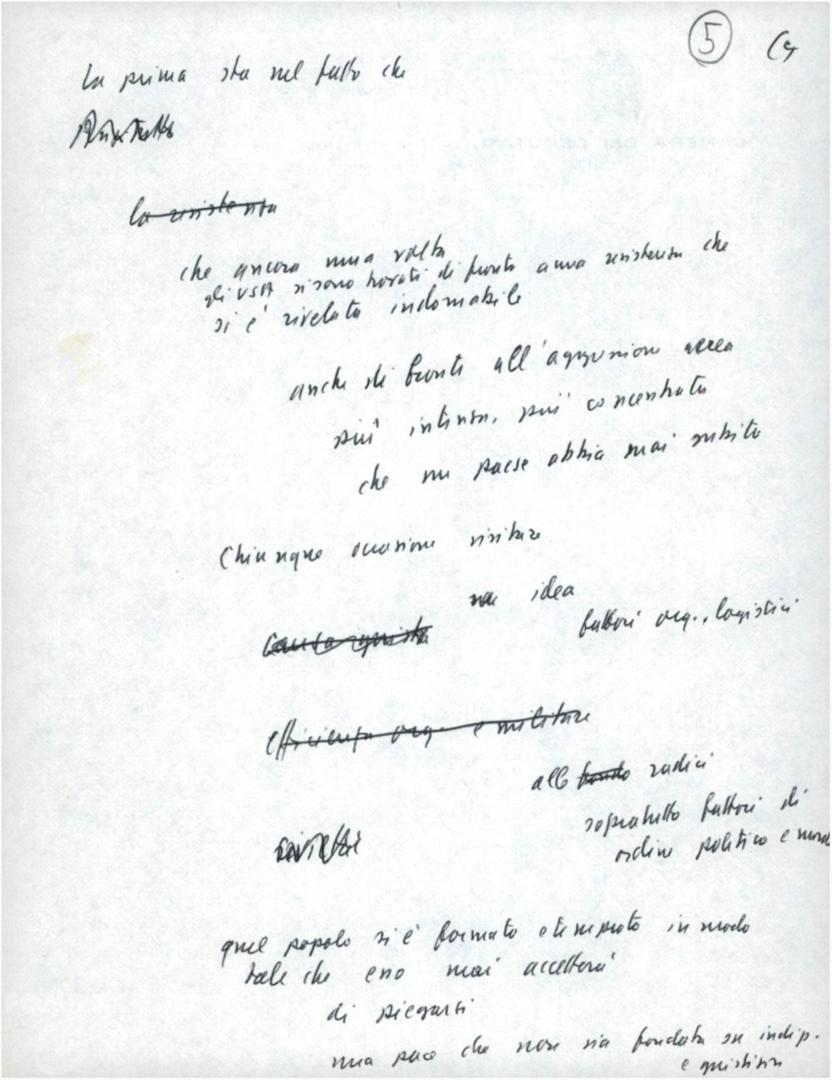 5
La prima sta nel fatto che
la resistenza
che ancora una volta
gli USA si sono trovati di fronte a una resistenza che
si è rivelata indomabile
anche di fronte all'aggressione aerea
più intensa, più concentrata
che un paese abbia mai subito
Chiunque occasione visitare
una idea
fattori org., logistici
efficienza org. e militare
alle fondo radici
sopratutto fattori di
ordine politico e
quel popolo si è formato e temprato in modo
tale che esso mai accetterà
di piegarsi
una pace che non sia fondata su indip.
e giustizia